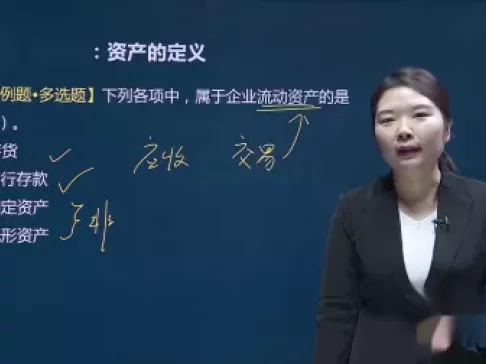 ：资产的定义
例题•多选题】下列各项中，属于企业流动资产的是
）。
货
应收 交易
行存款
定资产
非
形资产